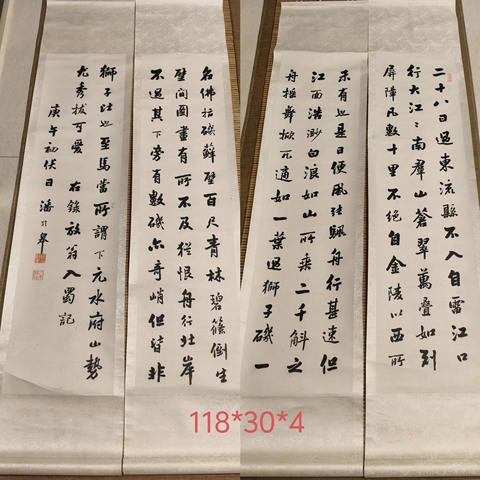 二十八日過東流縣不入自雷江口
行大江〻南群山蒼翠萬疊如列
屏障凡數十里不絕自金陵以西所
未有也是日便風張颿舟行甚速但
江面浩渺白浪如山所乘二千斛之
舟搖舞掀兀適如一葉過獅子磯一
名佛指磯蘚壁百尺青林碧篠倒生
壁間圖畫有所不及猶恨舟行北岸
不過其下旁有數磯亦奇峭但皆非
獅子比也至馬當所謂下元水府山勢
尤秀拔可愛 右錄放翁入蜀記
庚午初伏日潘齡皋
118*30*4